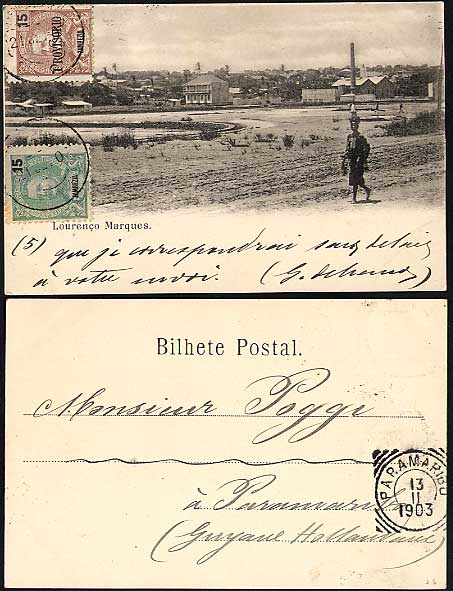 15
PROVISORIO
15
Lourenço Marques.
(5) que je correspondrai sans délai
à votre envoi. (G.
Bilhete Postal.
Monsieur Poggi
à Paramaribo
(Guyane Hollandaise)
PARAMARIBO
13
11
1903